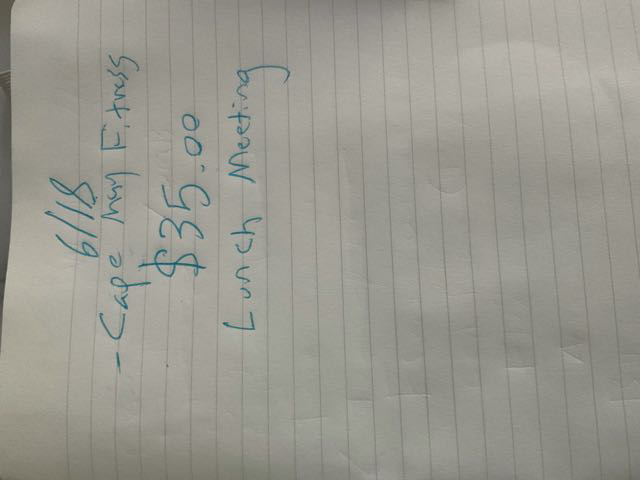 6/18
- Cape May Fitness
$35.00
Lunch Meeting